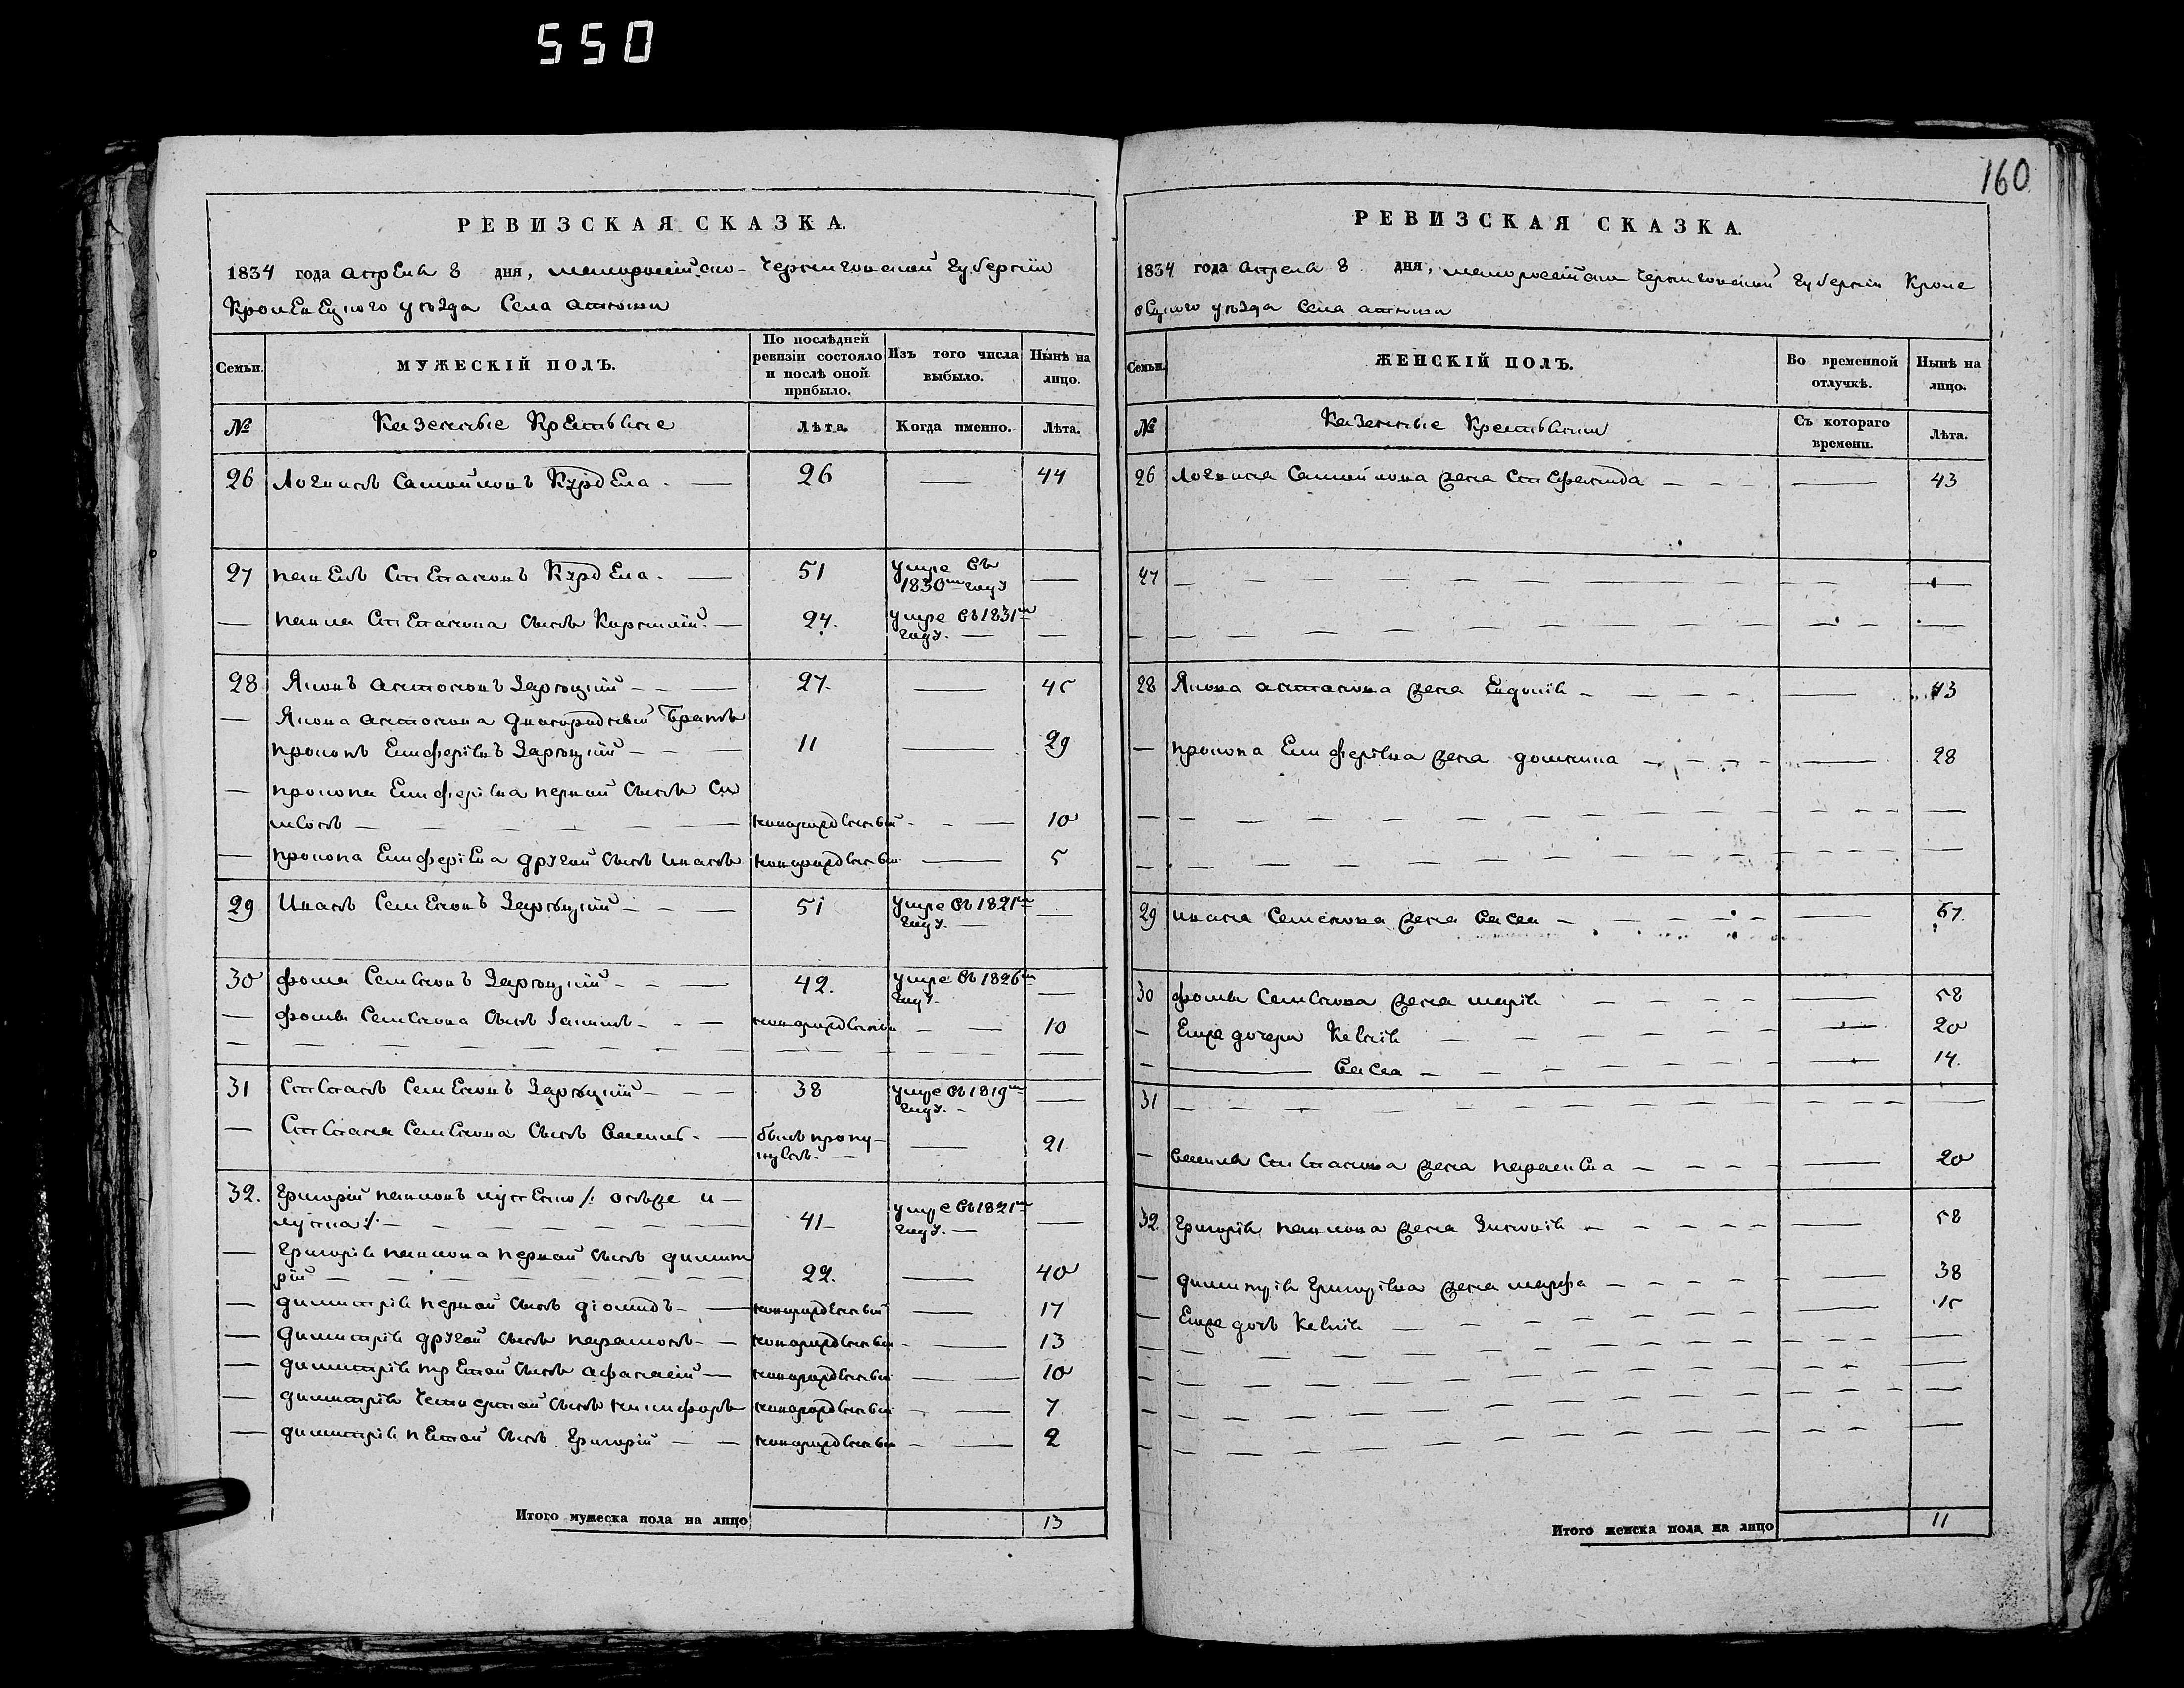 550
160
РЕВИЗСКАЯ СКАЗКА.
1834 года апреля 8 дня, малоросийско-Черниговской Губернии
Кролевецкого уезда Села
Семьи. МУЖЕСКІЙ ПОЛЪ. По послѣдней ревизіи состояло и послѣ оной прибыло. Изъ того числа выбыло. Нынѣ на лицо.
№ Казенные Крестьяне Лѣта. Когда именно. Лѣта.
26 Логвинъ Самойловъ Курдела 26 — 44
27 павелъ Степановъ Курдела 51 умре въ 1830м году —
— павла Степанова сынъ 24. умре въ 1831м году. —
28 Яковъ антоновъ Зарецкій 27. — 45
— Якова антонова двоюродный Братъ
прокопъ Елиферіевъ Зарецкій 11 — 29
— прокопа Елиферіева первой сынъ Си
мионъ новорожденный — 10
— прокопа Елиферіева другой сынъ иванъ новорожденный — 5
29 Иванъ Семеновъ Зарецкій 51 умре въ 1821м году. —
30 фома Семеновъ Зарецкій 42. умре въ 1826м году. —
— фомы Семенова сынъ новорожденный — 10
31 Степанъ Семеновъ Зарецкій 38 умре въ 1819м году. —
— Степана Семенова сынъ Василь былъ пропущенъ. — 21
32. Григорій павловъ /: онъже и
:/ 41 умре въ 1821м году. —
— Григорія павлова первой сынъ димит
рій 22. — 40
— димитрія первой сынъ діомидъ новорожденный — 17
— димитрія другой сынъ парамонъ новорожденный — 13
— димитрія третой сынъ афанасій новорожденный — 10
— димитрія четвертой сынъ никифоръ новорожденный — 7
— димитрія пятой сынъ Григорій новорожденный — 2
Итого мужеска пола на лицо 13
РЕВИЗСКАЯ СКАЗКА.
1834 года апреля 8 дня, малоросийско Черниговской Губернии Кроле
вецкого уезда Села
Семьи. ЖЕНСКІЙ ПОЛЪ. Во временной отлучкѣ. Нынѣ на лицо.
№ Казенные Крестьянки Съ котораго времени. Лѣта.
26 Логвина Самойлова жена Стефанида — 43
27
28 Якова антонова жена Евдокія — 43
— прокопа Елиферіева жена домникия — 28
29 ивана Семенова жена Васса — 67.
30 фомы Семенова жена марія — 58
— Ейже дочери Ксенія — 20
— Васса — 14.
31
— Василя Степанова жена — 20
32. Григорія павлова жена Зиновія — 58
— димитрія Григоріева жена марфа — 38
— Ейже дочь Ксенія — 15
Итого женска пола на лицо 11